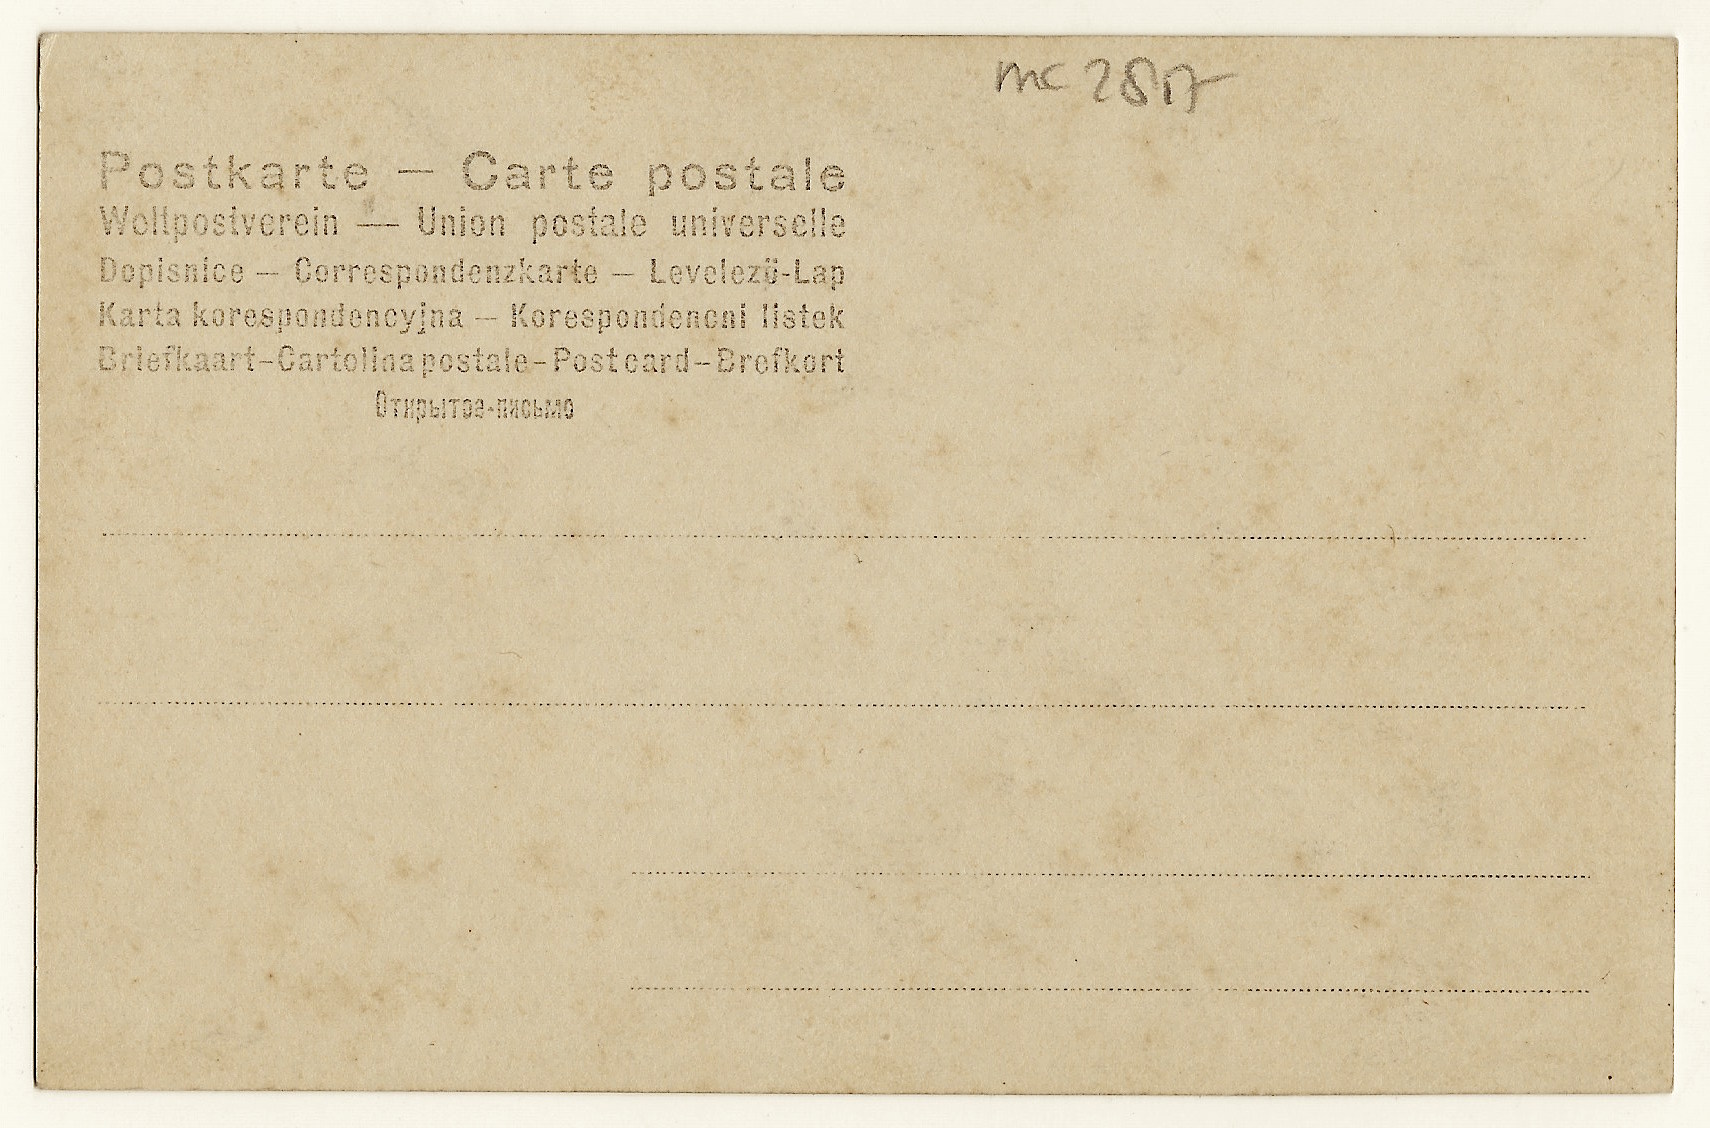 mc
Postkarte — Carte postale
Weltpostverein — Union postale universelle
Dopisnice — Correspondenzkarte — Levelező-Lap
Karta korespondencyjna — Korespondencni listek
Briefkaart-Cartolina postale-Post card-Brefkort
Открытое-письмо